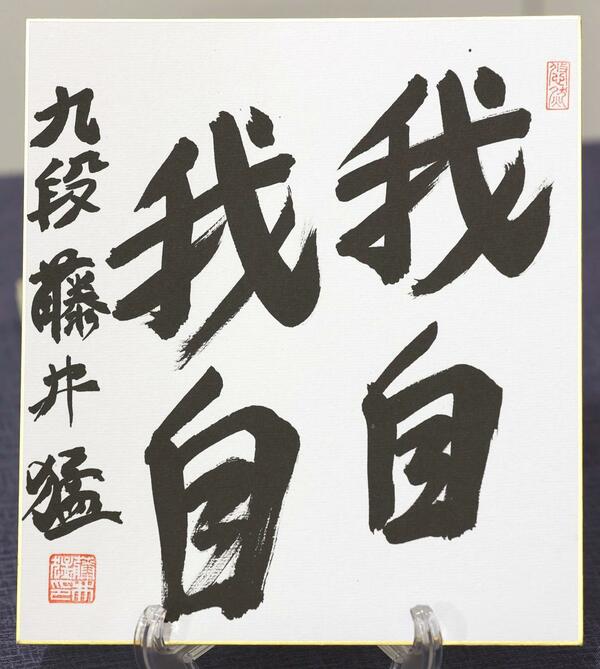 我自
我自
九段 藤井猛